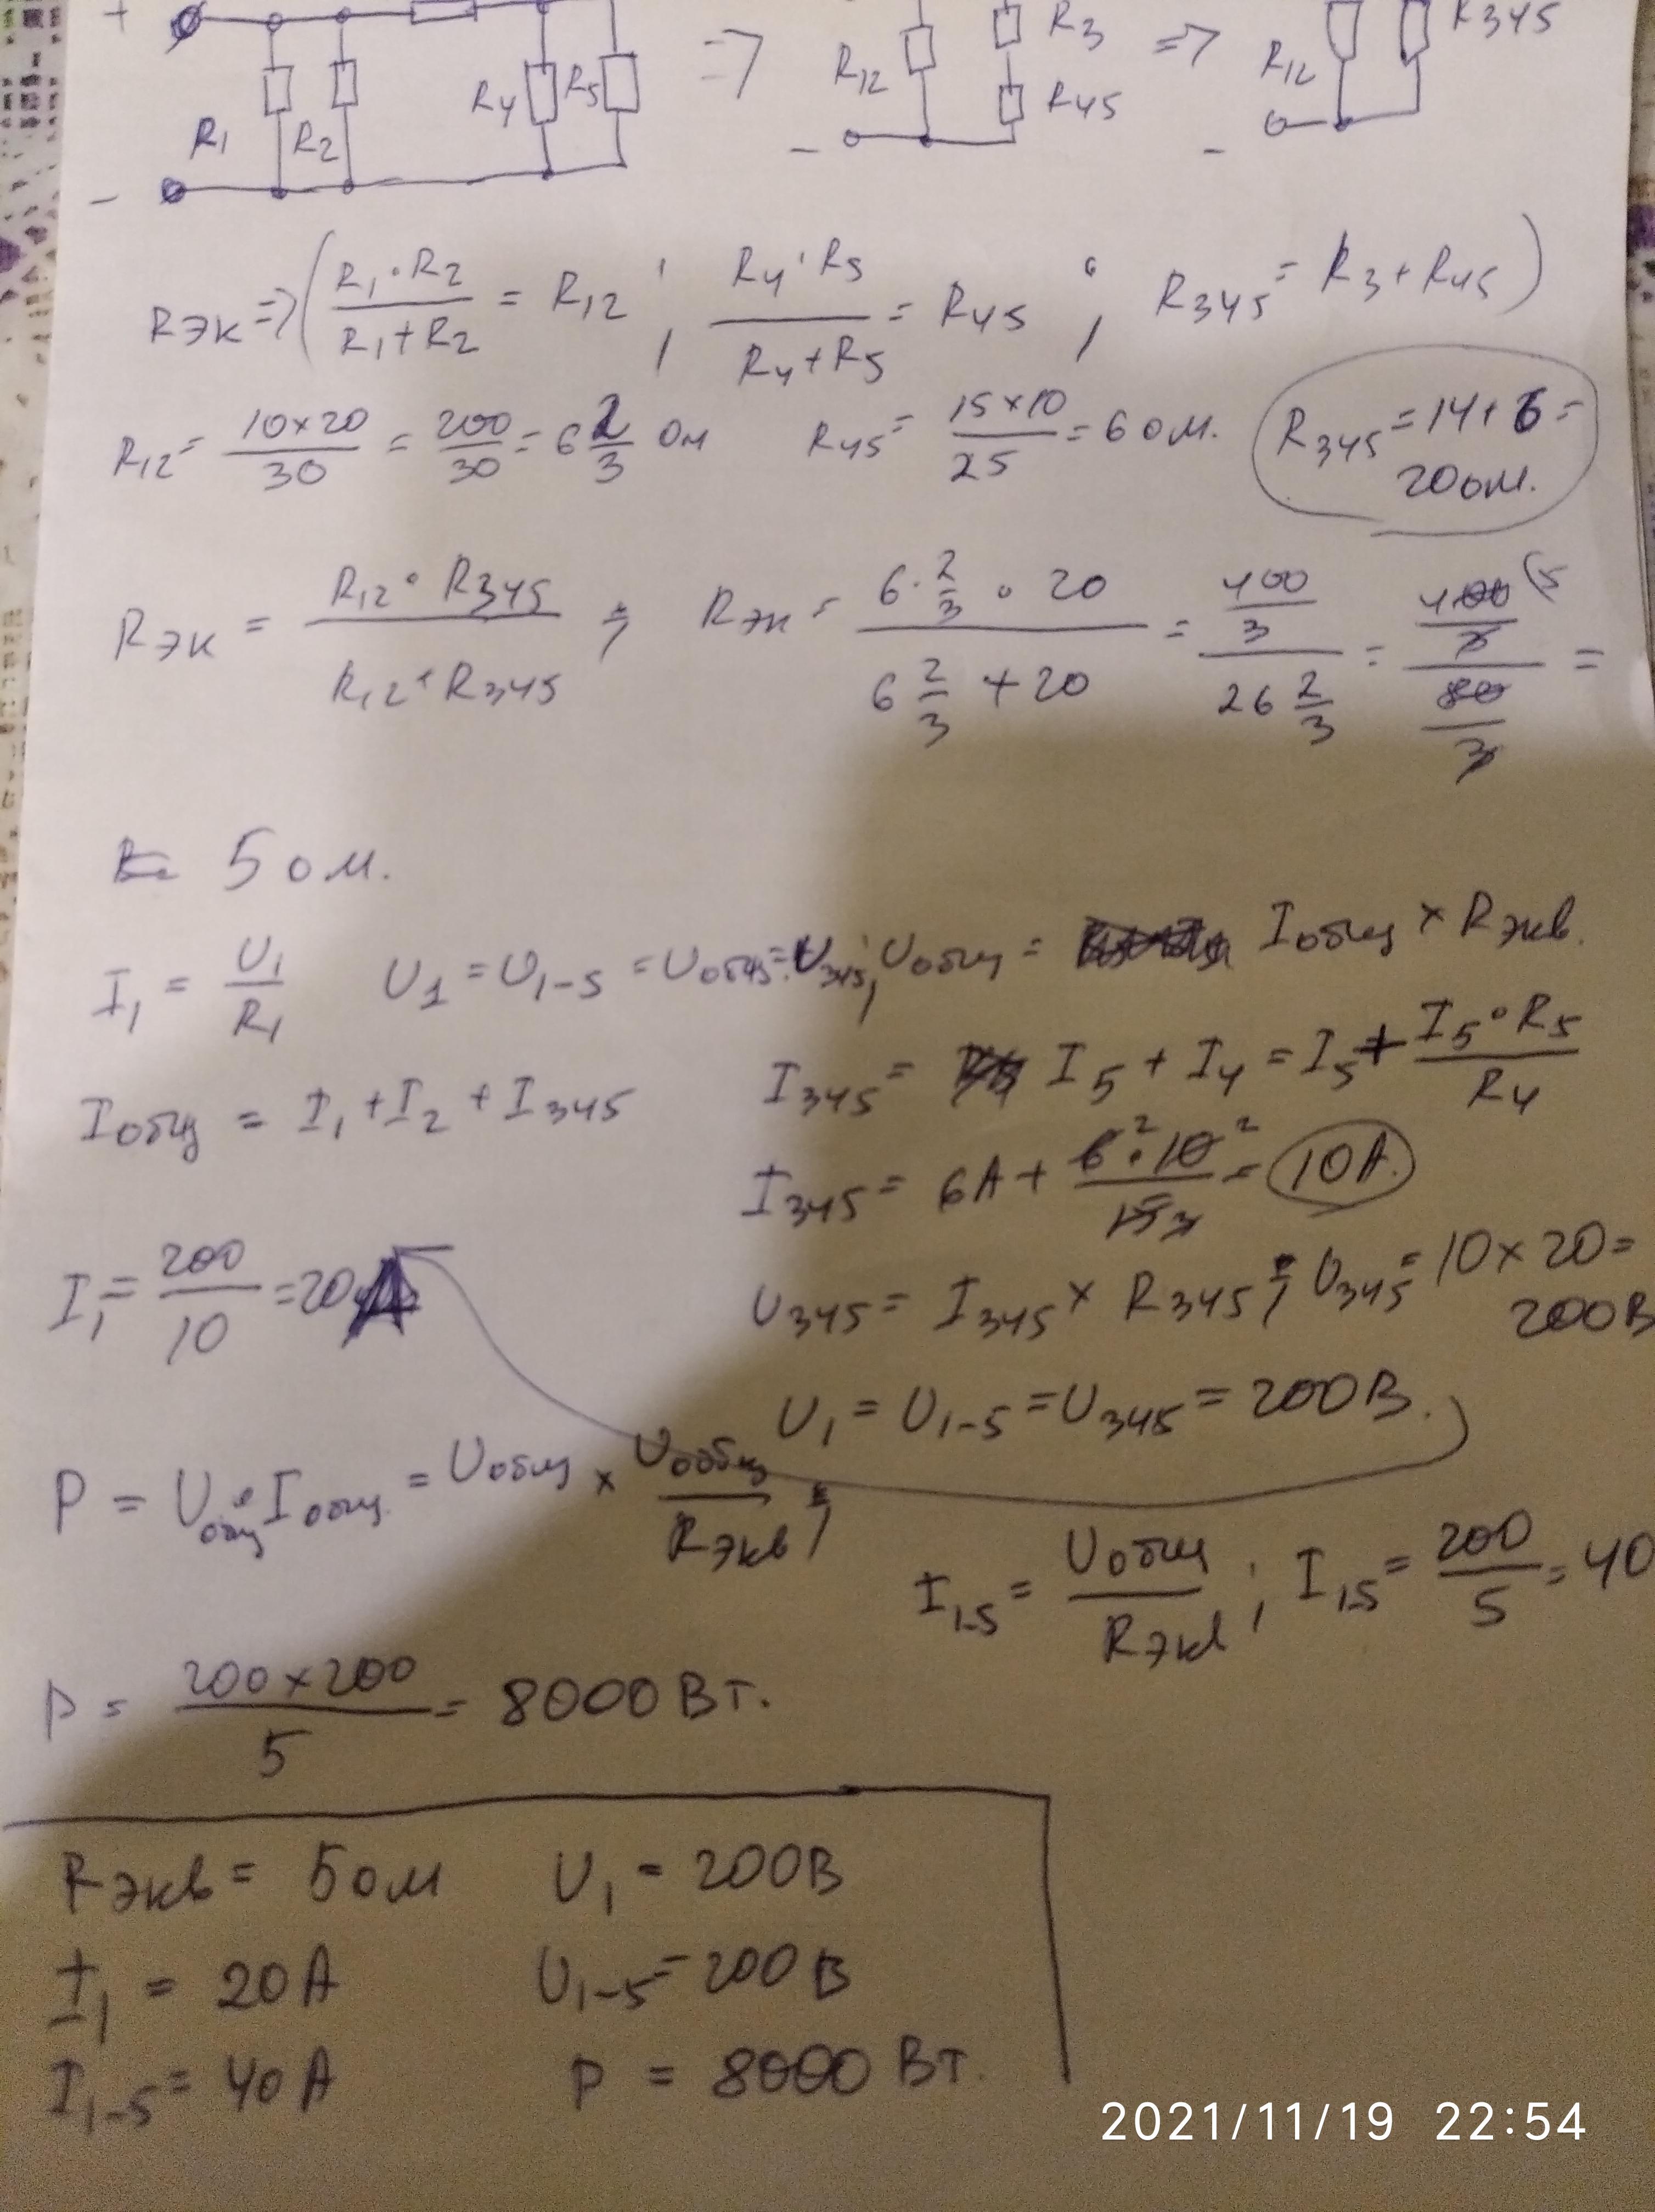 + R3 R345
R1 R2 R4 R5 => R12 R45 => R12
- - -
Rэк => (R1·R2/R1+R2 = R12 ; R4·R5/R4+R5 = R45 ; R345 = R3 + R45)
R12 = 10×20/30 = 200/30 = 6 2/3 Ом R45 = 15×10/25 = 6 Ом. R345 = 14 + 6 =
20 Ом.
Rэк = R12 · R345/R12 + R345 ; Rэк = 6·2/3 · 20/6 2/3 + 20 = 400/3/26 2/3 = 400/3/80/3 (5 =
= 5 Ом.
I1 = U1/R1 U1 = U1-5 = Uобщ = U345 ; Uобщ = Iобщ × Rэкв.
Iобщ = I1 + I2 + I345 I345 = I5 + I4 = I5 + I5·R5/R4
I345 = 6А + 6·10/15 = 10А.
I1 = 200/10 = 20А U345 = I345 × R345 ; U345 = 10×20 =
200В
U1 = U1-5 = U345 = 200В.
P = Uобщ · Iобщ. = Uобщ × Uобщ/Rэкв ;
I1-5 = Uобщ/Rэкв ; I1-5 = 200/5 = 40
P = 200×200/5 = 8000 Вт.
Rэкв = 5 Ом U1 = 200В
I1 = 20А U1-5 = 200В
I1-5 = 40А P = 8000 Вт.
2021/11/19 22:54